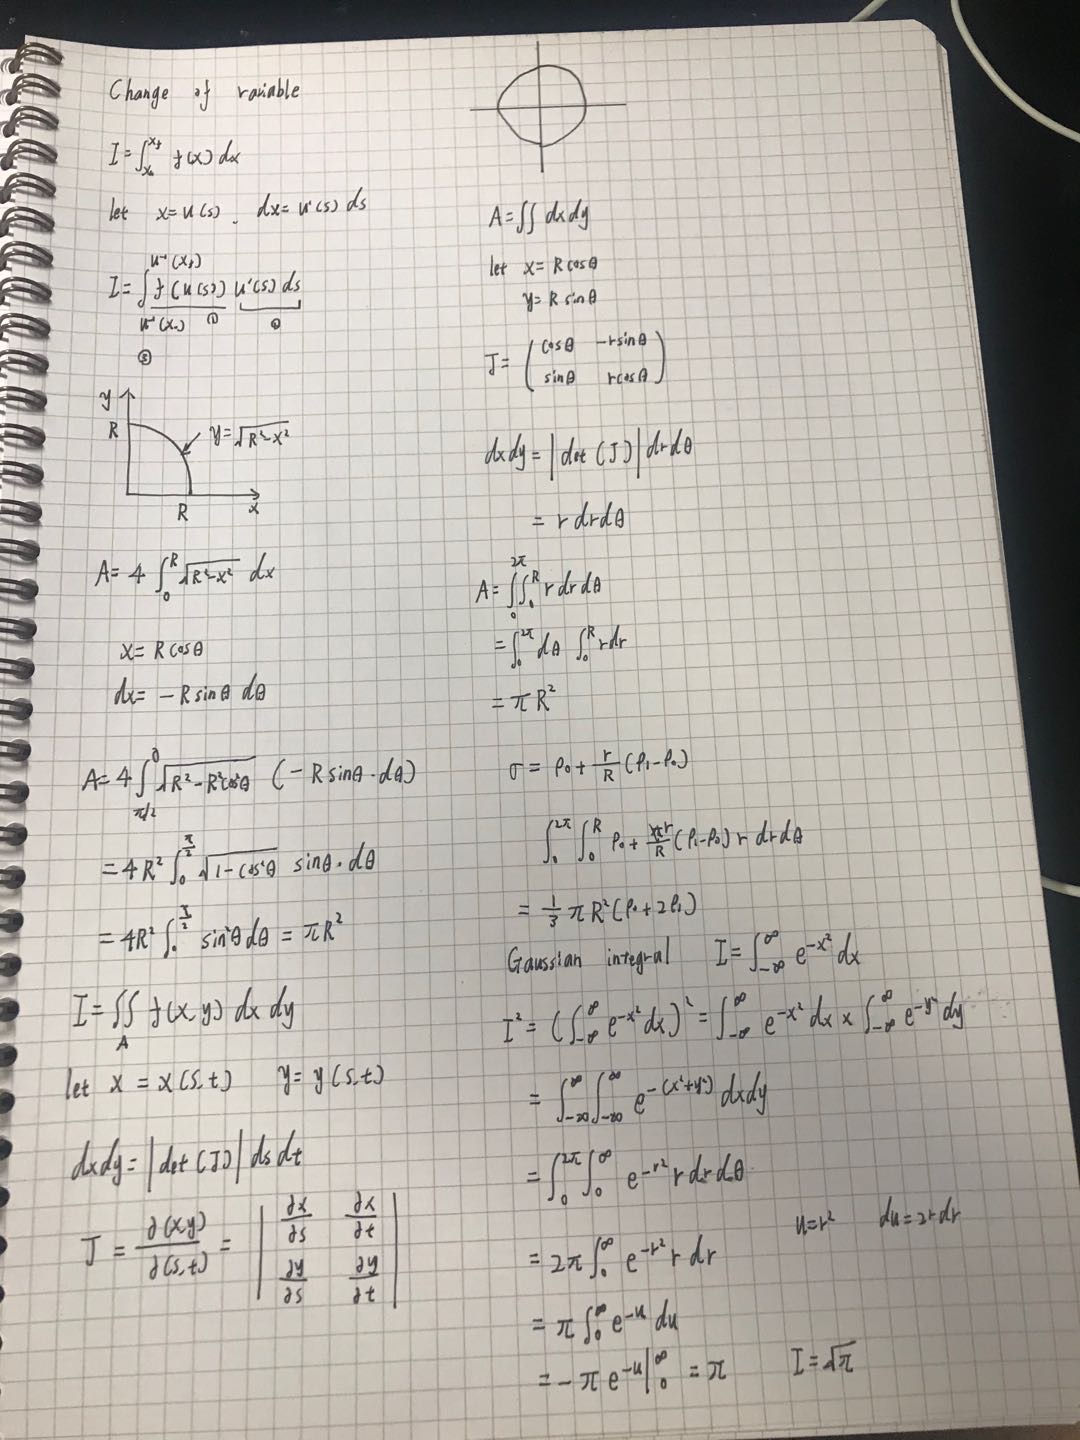 Change of variable
I = ∫_{x₀}^{x_f} f(x) dx
let x = u(s) , dx = u'(s) ds
I = ∫_{u⁻¹(x₀)}^{u⁻¹(x_f)} f(u(s)) u'(s) ds
① ②
③
y
R y = √(R²-x²)
R x
A = 4 ∫_0^R √(R²-x²) dx
x = R cosθ
dx = - R sinθ dθ
A = 4 ∫_{π/2}^0 √(R² - R²cos²θ) (- R sinθ · dθ)
= 4R² ∫_0^{π/2} √(1 - cos²θ) sinθ · dθ
= 4R² ∫_0^{π/2} sin²θ dθ = πR²
I = ∬_A f(x,y) dx dy
let x = x(s,t) y = y(s,t)
dxdy = |det(J)| ds dt
J = ∂(x,y)/∂(s,t) = | ∂x/∂s ∂x/∂t |
| ∂y/∂s ∂y/∂t |
A = ∬ dxdy
let x = R cosθ
y = R sinθ
J = ( cosθ -rsinθ )
( sinθ rcosθ )
dxdy = |det(J)| drdθ
= r drdθ
A = ∫_0^{2π} ∫_0^R r dr dθ
= ∫_0^{2π} dθ ∫_0^R r dr
= πR²
σ = ρ₀ + r/R (ρ₁-ρ₀)
∫_0^{2π} ∫_0^R ρ₀ + r/R (ρ₁-ρ₀) r dr dθ
= 1/3 πR² (ρ₀+2ρ₁)
Gaussian integral I = ∫_{-∞}^∞ e^{-x²} dx
I² = (∫_{-∞}^∞ e^{-x²} dx)² = ∫_{-∞}^∞ e^{-x²} dx × ∫_{-∞}^∞ e^{-y²} dy
= ∫_{-∞}^∞ ∫_{-∞}^∞ e^{-(x²+y²)} dxdy
= ∫_0^{2π} ∫_0^∞ e^{-r²} r dr dθ
u = r² du = 2r dr
= 2π ∫_0^∞ e^{-r²} r dr
= π ∫_0^∞ e^{-u} du
= - π e^{-u} |_0^∞ = π I = √π